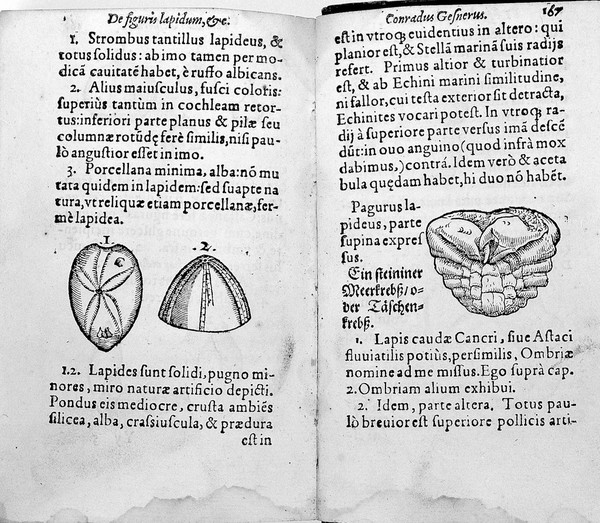 De figuris lapidum, &c.
1. Strombus tantillus lapideus, &
totus solidus: ab imo tamen per mo-
dicā cauitatē habet, è ruffo albicans.
2. Alius maiusculus, fusci coloris:
superiùs tantùm in cochleam retor-
tus: inferiori parte planus & pilæ seu
columnæ rotūdę ferè similis, nisi pau-
lò angustior esset in imo.
3. Porcellana minima, alba: nō mu
tata quidem in lapidem: sed suapte na
tura, vt reliquæ etiam porcellanæ, fer-
mè lapidea.
1.
2.
1.2. Lapides sunt solidi, pugno mi-
nores, miro naturæ artificio depicti.
Pondus eis mediocre, crusta ambiēs
silicea, alba, crassiuscula, & prædura
est in
Conradus Gesnerus. 167
est in vtroq; euidentius in altero: qui
planior est, & Stellā marinā suis radijs
refert. Primus altior & turbinatior
est, & ab Echini marini similitudine,
ni fallor, cui testa exterior sit detracta,
Echinites vocari potest. In vtroq; ra-
dij à superiore parte versus imā descē
dūt: in ouo anguino (quod infrà mox
dabimus,) contrá. Idem verò & aceta
bula quędam habet, hi duo nō habēt.
Pagurus la-
pideus, parte
supina expres
sus.
Ein steininer
Meerkrebß/ o-
der Täschen-
krebß.
1. Lapis caudæ Cancri, siue Astaci
fluuiatilis potiùs, persimilis, Ombriæ
nomine ad me missus. Ego suprà cap.
2. Ombriam alium exhibui.
2. Idem, parte altera. Totus pau-
lò breuior est superiore pollicis arti-